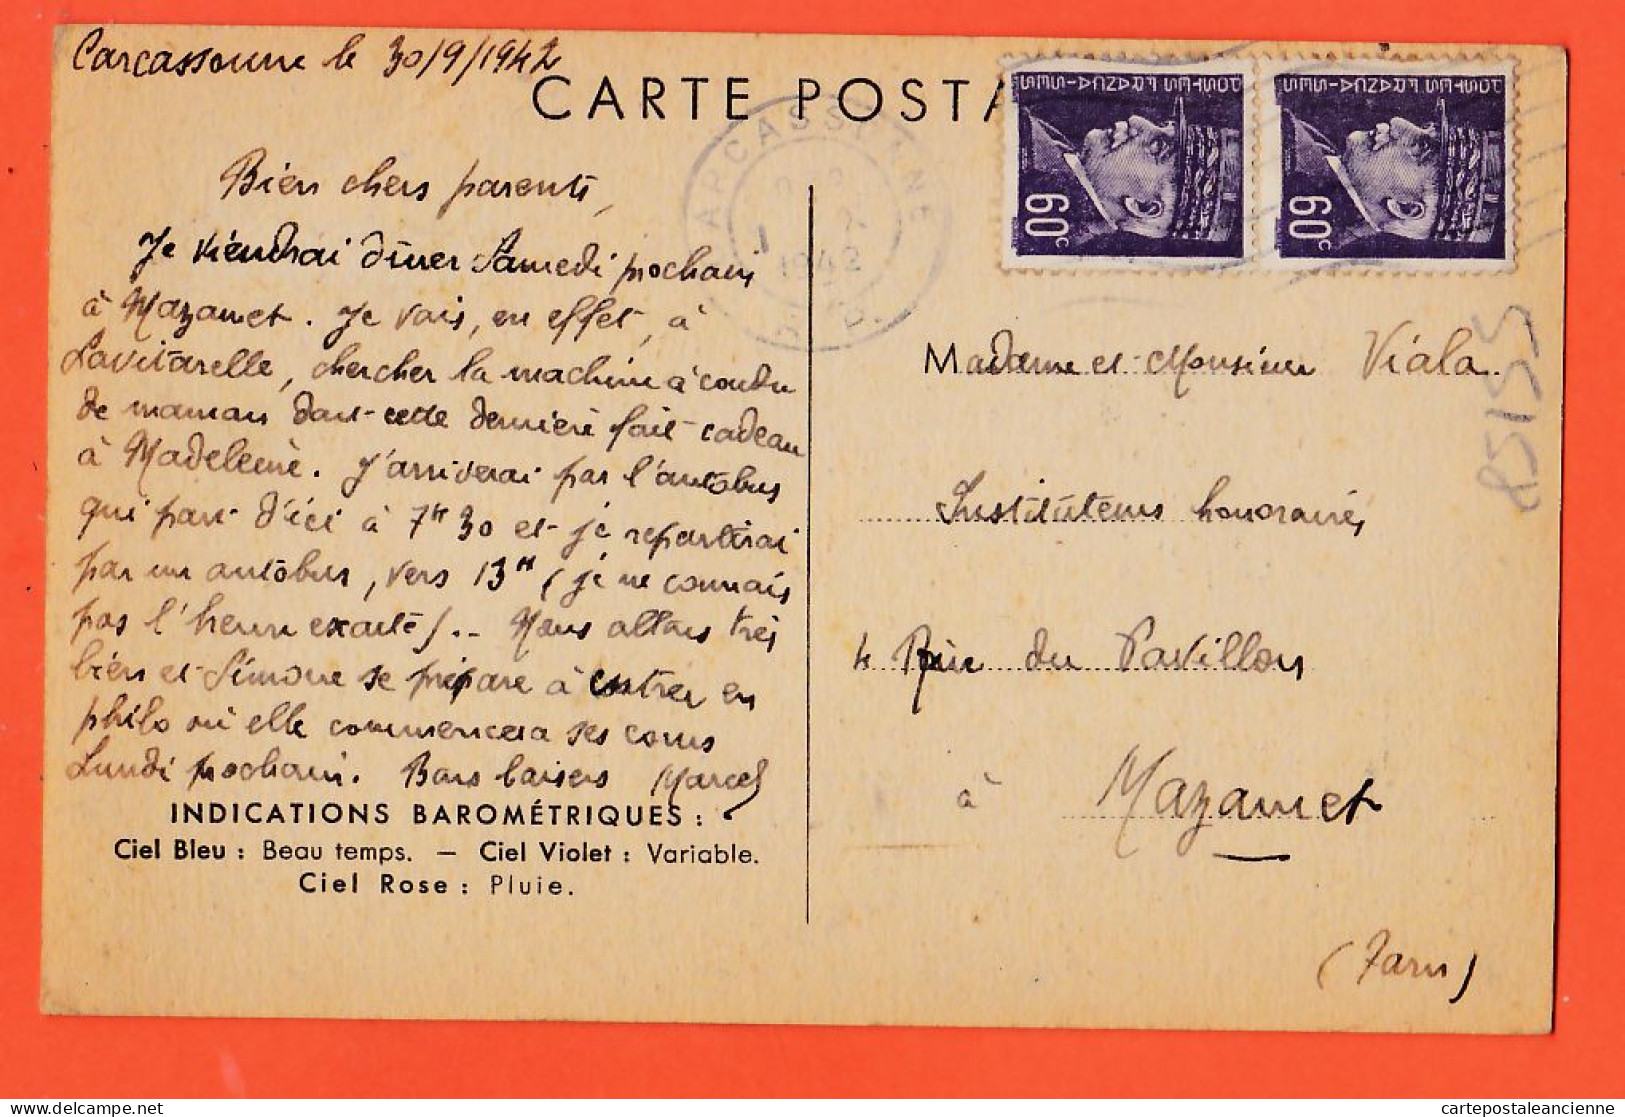 Carcassonne le 30/9/1942
CARTE POSTA
POSTES FRANÇAISES
60c
POSTES FRANÇAISES
60c
CARCASSONNE
1942
Bien chers parents,
Je viendrai dîner Samedi prochain
à Mazamet. Je vais, en effet, à
Lavitarelle, chercher la machine à coudre
de maman dont cette dernière fait cadeau
à Madeleine. J'arriverai par l'autobus
qui part d'ici à 7H30 et je repartirai
par un autobus, vers 13H (je ne connais
pas l'heure exacte). - Nous allons très
bien et Simone se prépare à entrer en
philo où elle commencera ses cours
Lundi prochain. Bons baisers Marcel
INDICATIONS BAROMÉTRIQUES :
Ciel Bleu : Beau temps. — Ciel Violet : Variable.
Ciel Rose : Pluie.
Madame et Monsieur Viala
Instituteurs honoraires
4 Rue du Pavillon
à Mazamet
(Tarn)
85155
cartepostaleancienne
delcampe.net
cartepostaleancienne